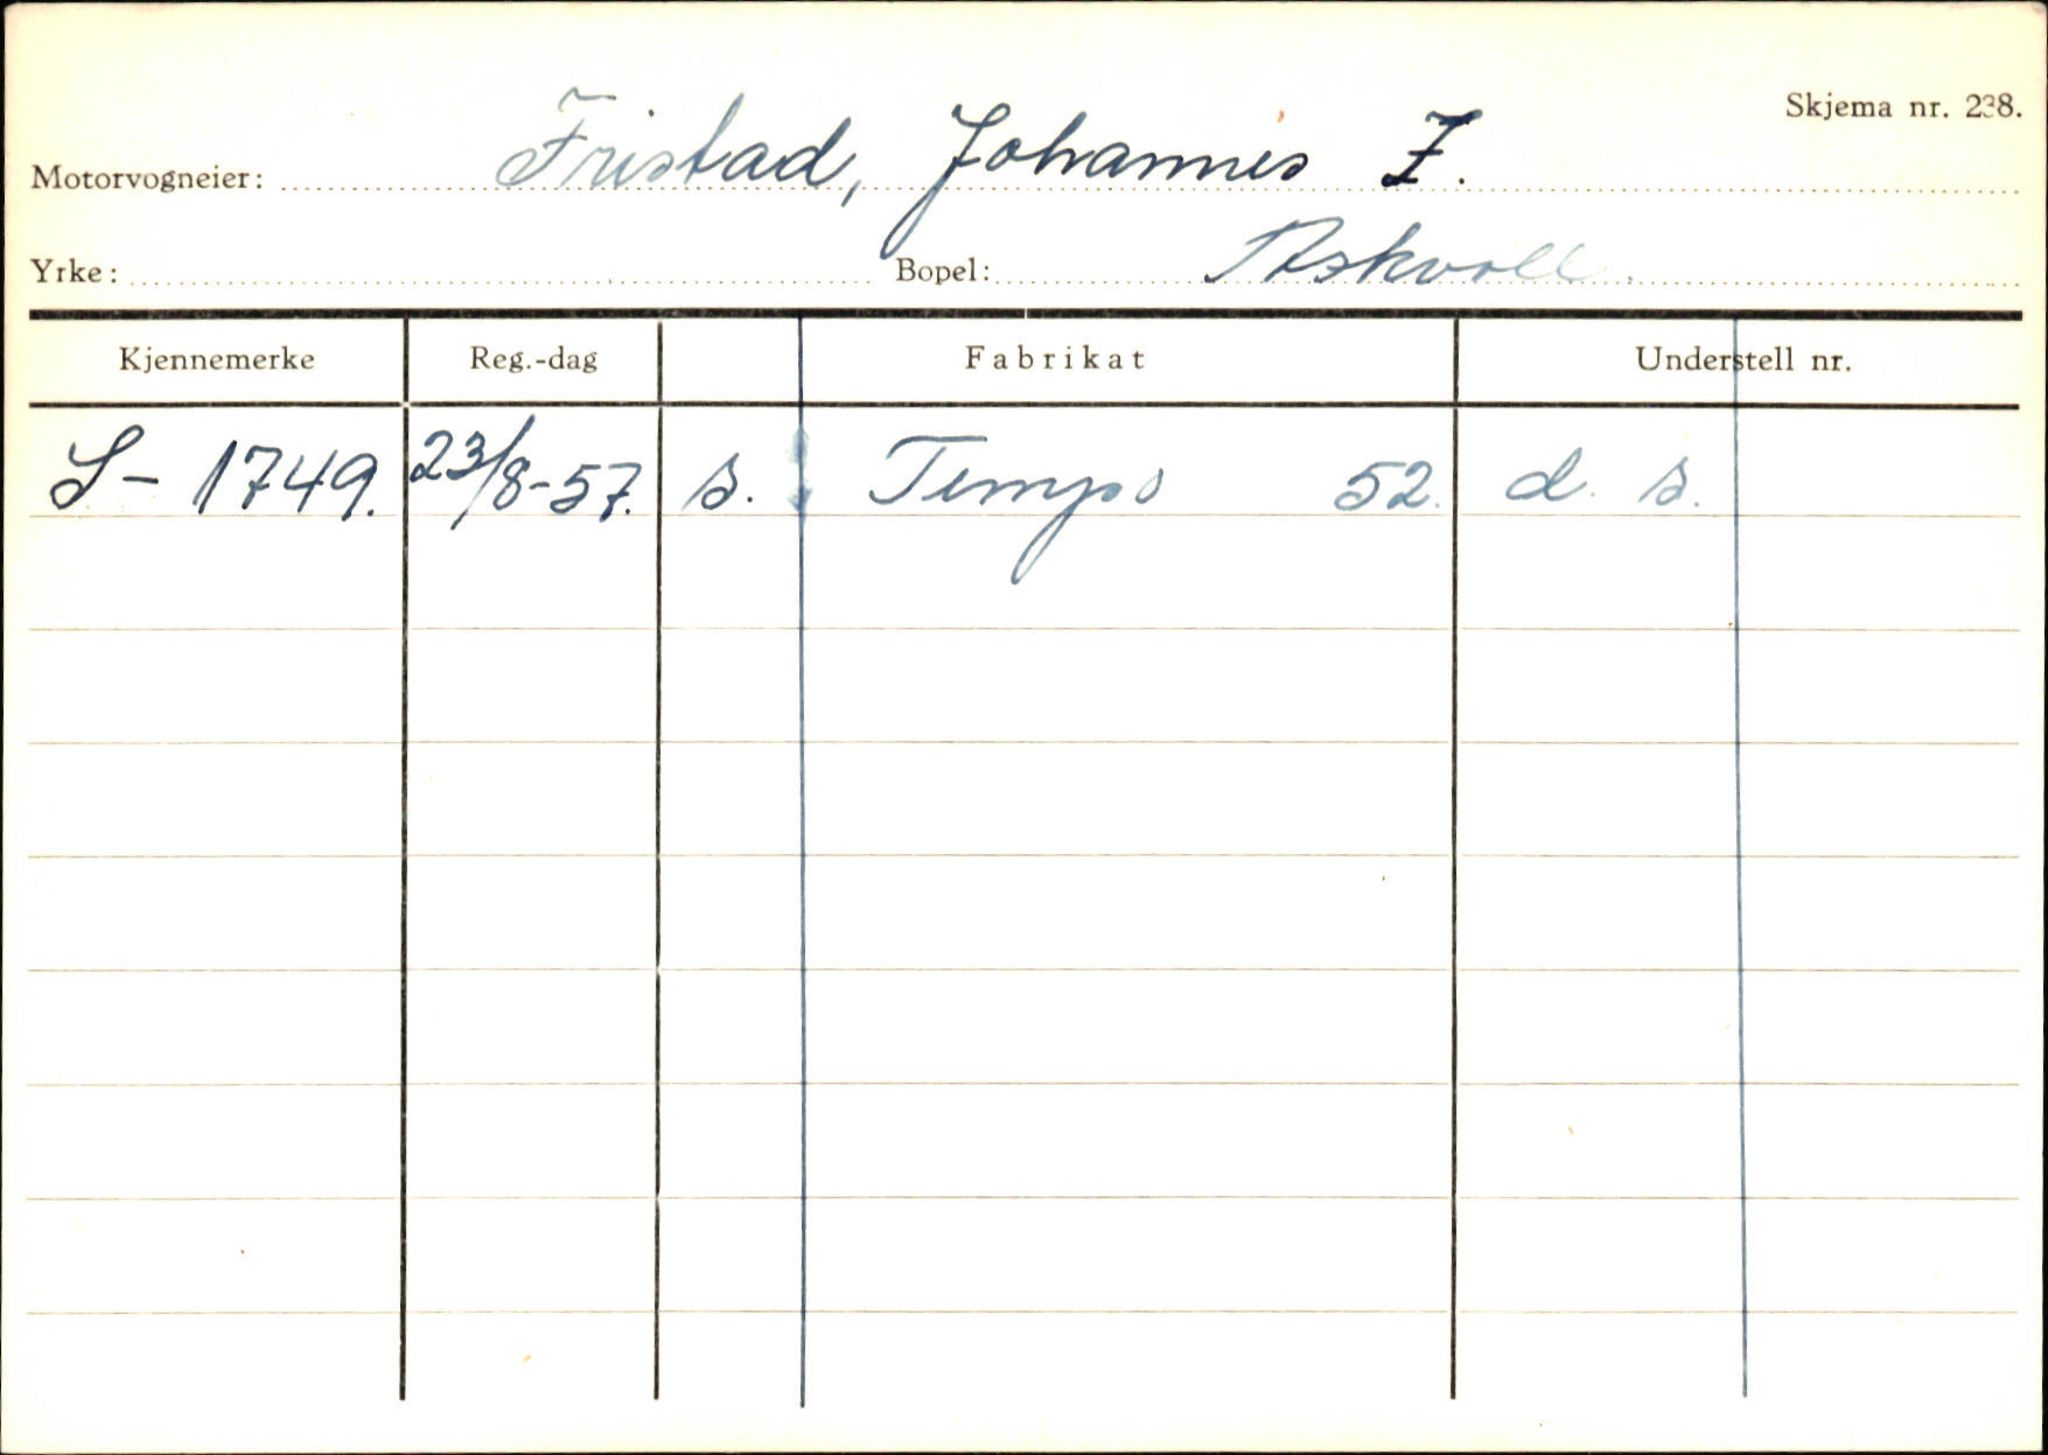 Skjema nr. 238.
Motorvogneier: Fristad, Johannes Z.
Yrke: Bopel: Askvoll.
Kjennemerke Reg.-dag Fabrikat Understell nr.
S- 1749. 23/8-57. s. Tempo 52. d. s.